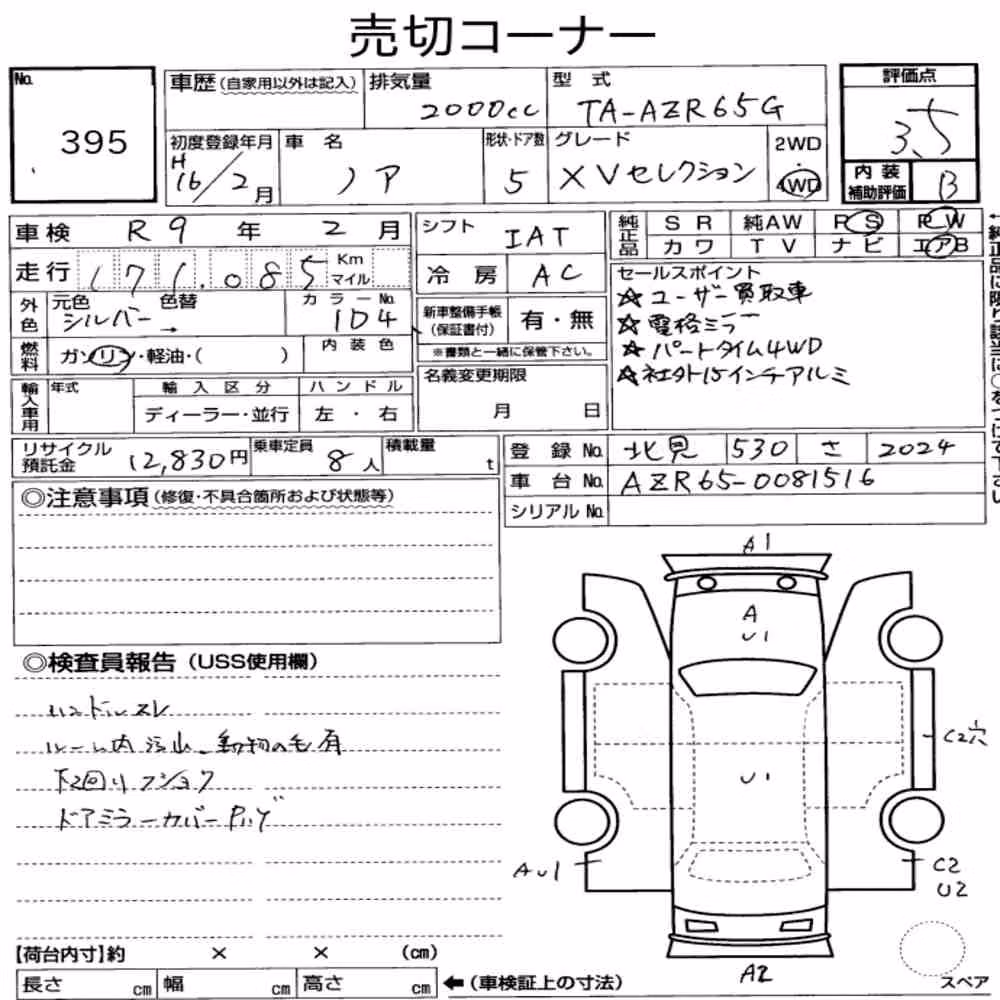 売切コーナー
No. 395
車歴(自家用以外は記入) 排気量 2000cc 型式 TA-AZR65G 評価点 3.5
初度登録年月 H16/2月 車名 ノア 形状・ドア数 5 グレード XVセレクション 2WD・4WD 内装補助評価 B
車検 R9年 2月 シフト IAT 純正品 SR 純AW PS PW
カワ TV ナビ エアB
走行 171,085 Km マイル 冷房 AC
セールスポイント
☆ユーザー買取車
☆電格ミラー
☆パートタイム4WD
☆社外15インチアルミ
外色 元色 シルバー 色替 → カラーNo. 1D4
新車整備手帳(保証書付) 有・無
※書類と一緒に保管下さい。
燃料 ガソリン・軽油・( ) 内装色
名義変更期限 月 日
輸入車用 年式 輸入区分 ディーラー・並行 ハンドル 左・右
リサイクル預託金 12,830円 乗車定員 8人 積載量 t
登録No. 北見 530 さ 2024
車台No. AZR65-0081516
シリアルNo.
◎注意事項(修復・不具合箇所および状態等)
◎検査員報告(USS使用欄)
ハンドルスレ
ルーム内汚山 動物の毛有
下回りフショク
ドアミラーカバー
A1
A
U1
U1
C2穴
AU1
C2
U2
A2
スペア
【荷台内寸】約 × × (cm)
長さ cm 幅 cm 高さ cm ←(車検証上の寸法)